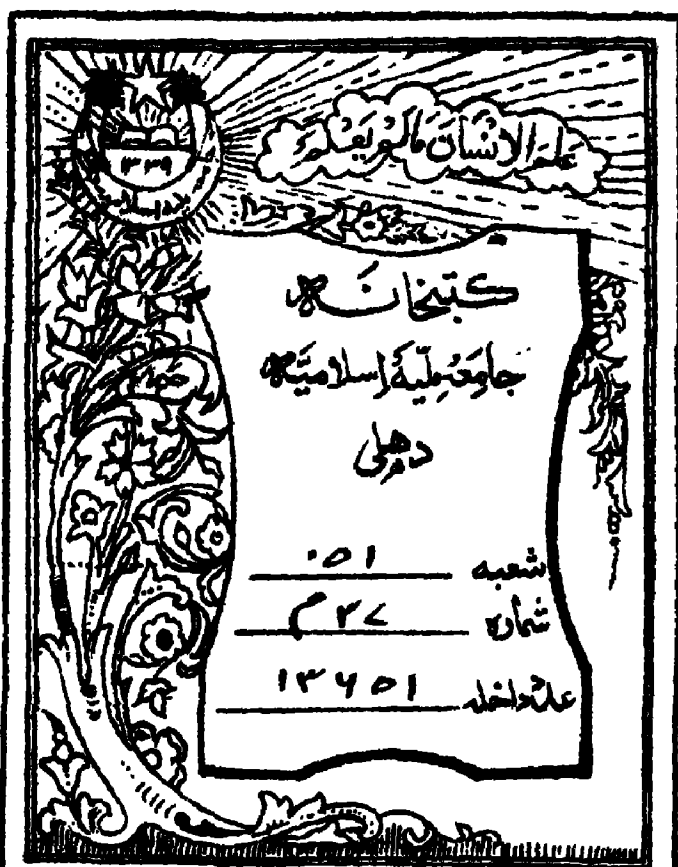 علم الانسان مالم یعلم
۱۳۳۹
کتبخانہ
جامعہ ملیہ اسلامیہ
دہلی
شعبہ ۰۵۱
شمارہ ۳۷ م
عدد داخلہ ۱۳۶۵۱